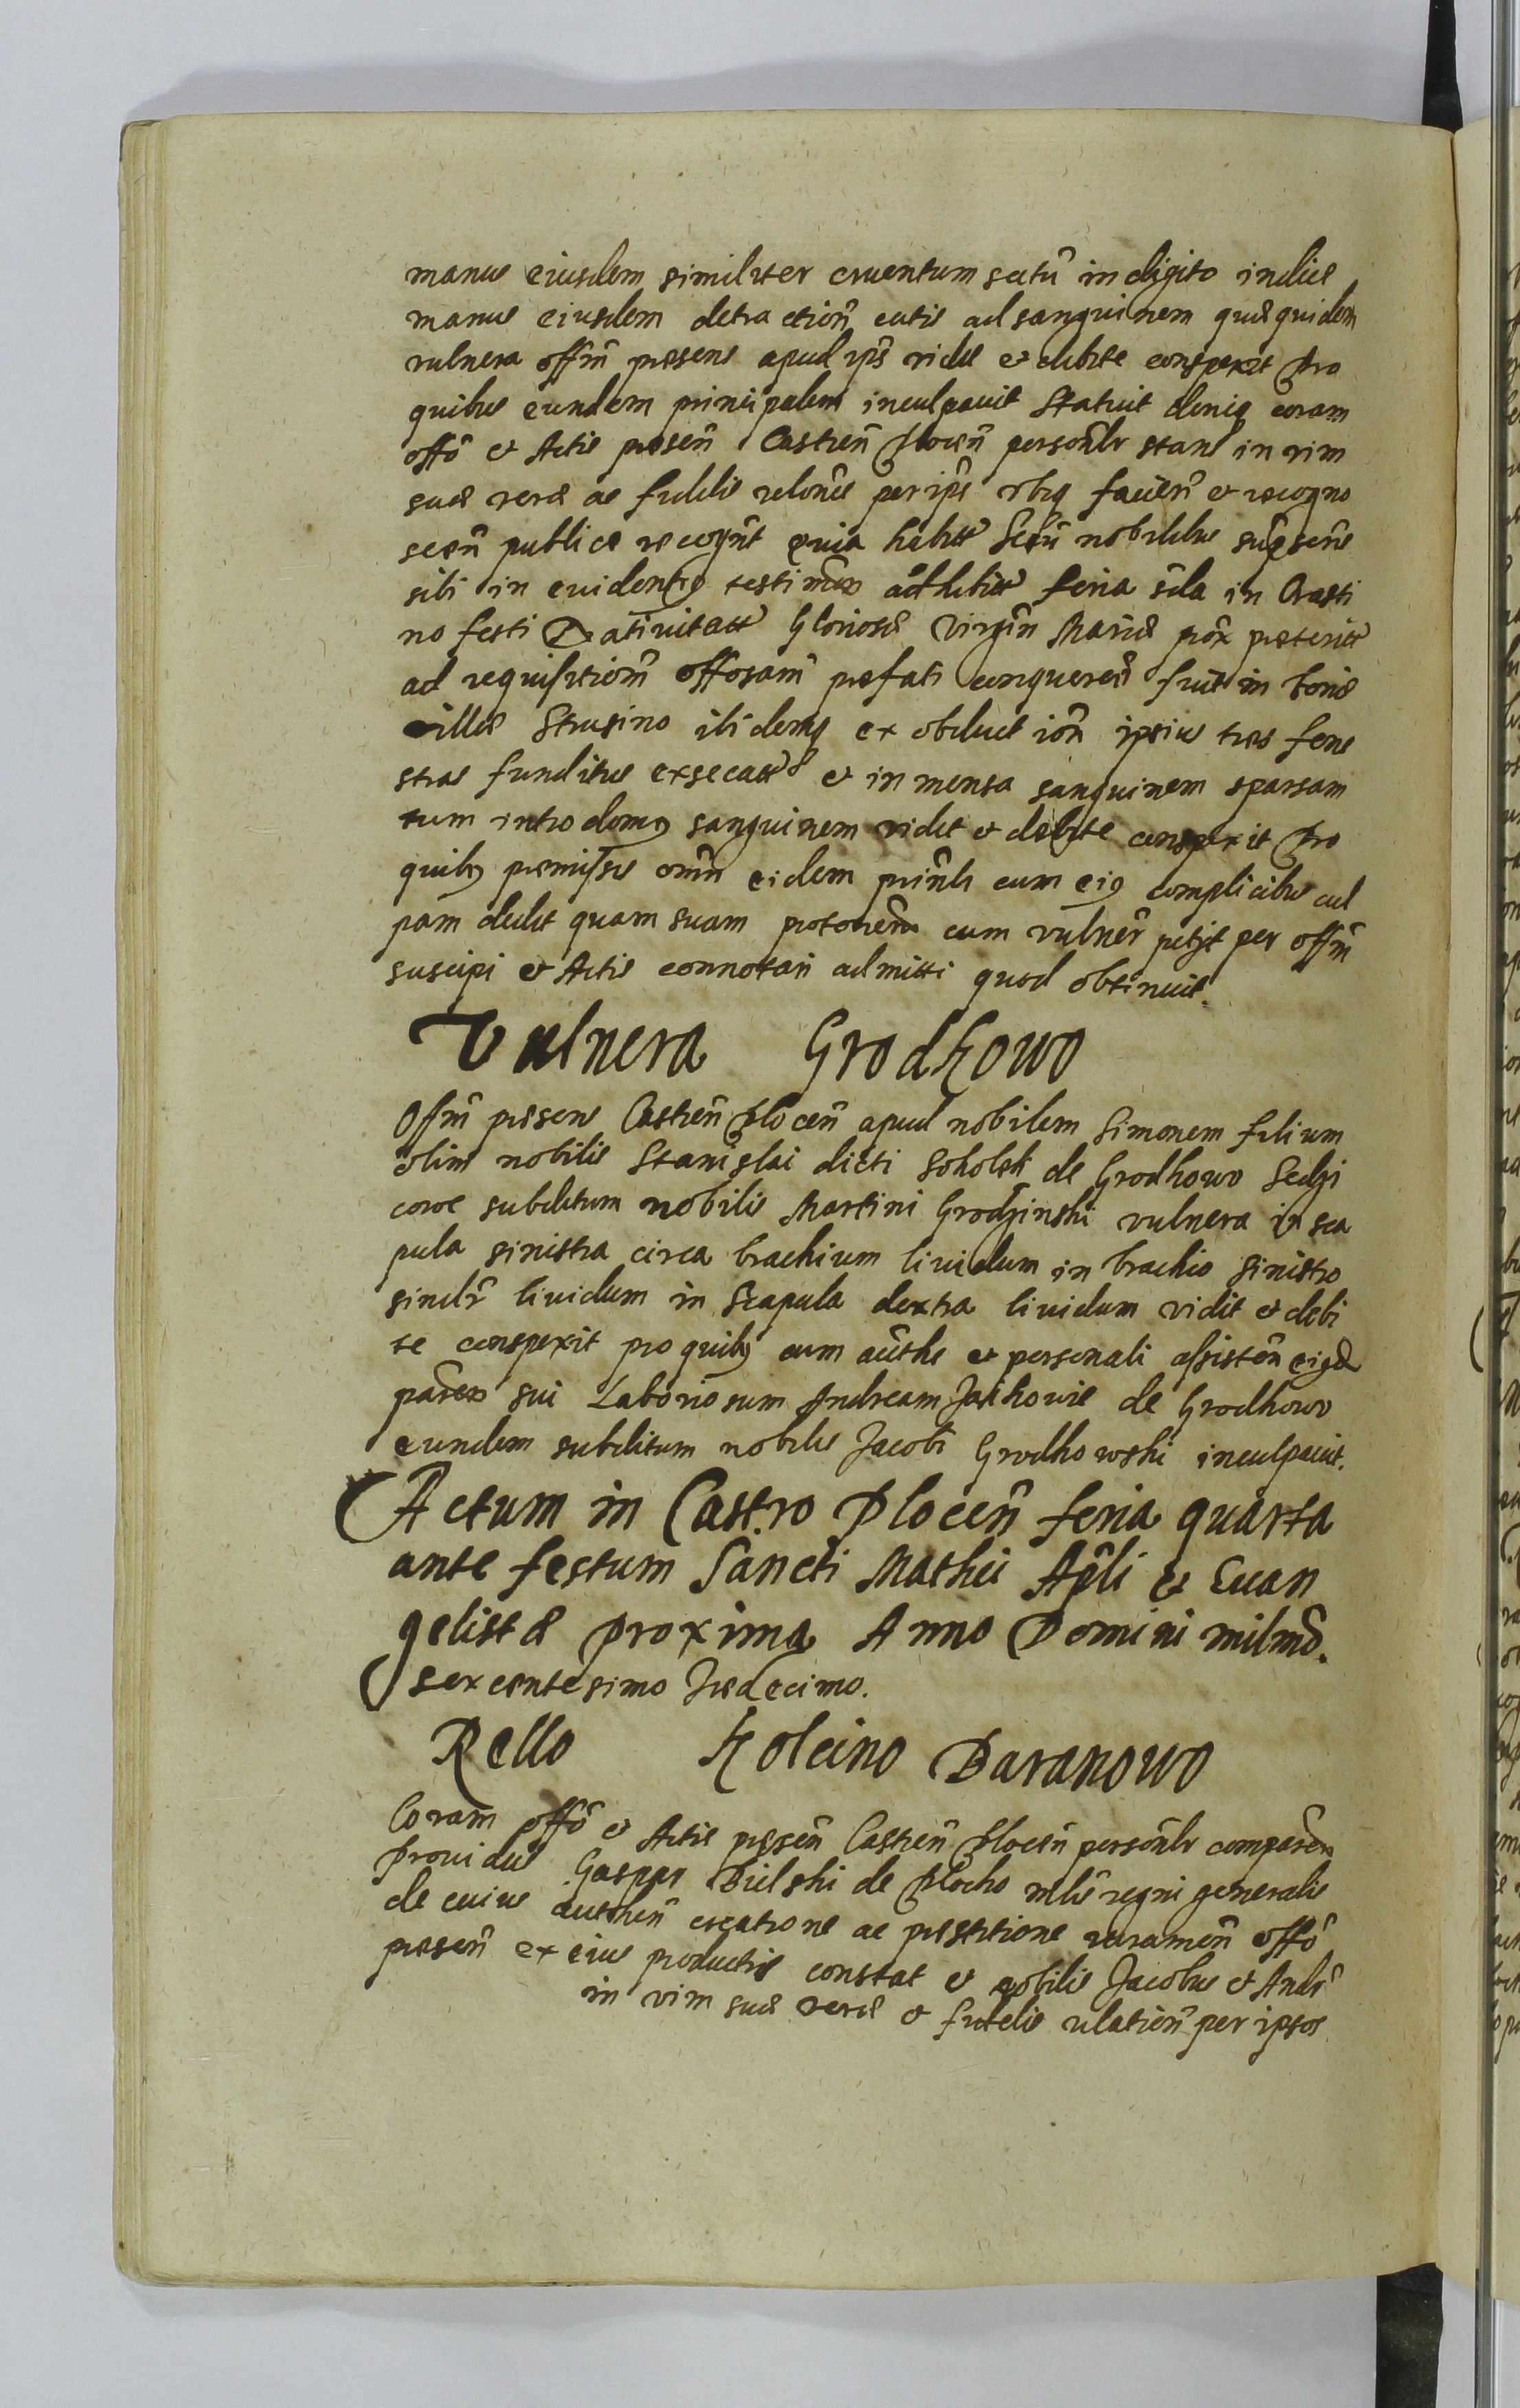 manus eiusdem similiter cruentum sectũ in digito indice
manus eiusdem detractionẽ cutis ad sanguinem quæ quidem
vulnera offm̃ præsens apud ips̃ vidit et debite conspexit Pro
quibus eundem principalem inculpavit Statuit deniq coram
offõ et Actis præseñ Castreñ Plocẽn personl̃r stans in vim
suæ veræ ac fidelis relonĩs per ips̃ ibiq facieñ et recogno
sceñ publice recognt̃ quia habitis secũ nobilibus
sibi in evidentius testimõm adhibitis feria sc̃da in Crasti
no festi Nativitatis Gloriosæ Virgĩn Mariæ prõx præteritis
ad requisitionẽ offosam̃ præfati conquereñ fuit in bonis
villæ Strusino ibidemq ex obductioñ ipsius tres fene
stras funditus exsecatas et in mensa sanguinem sparsam
tum intro domus sanguinem vidit et debite conspexit Pro
quibus præmissis om̃i eidem prinl̃i cum eius complicibus cul
pam dedit quam suam protonem̃ cum vulner̃ petijt per offm̃
suscipi et Actis connotari admitti quod obtinuit.
Vulnera Grodkowo
Offm̃ præsens Castreñ Plocen̄ apud nobilem Simonem filium
olim nobilis Stanislai dicti Sokolek de Grodkowo Sedzi
cowe subditum nobilis Martini Grodzinski vulnera in sca
pula sinistra circa brachium lividum in brachio sinistro
similr̃ lividum in Scapula dextra lividum vidit et debi
te conspexit pro quibus cum aũthe et personali assisteñ eiusd
parẽn sui Laboriosum Andream Jackowic de Grodkowo
eundem subditum nobilis Jacobi Grodkowski inculpavit.
Actum in Castro Plocen̄ feria quarta
ante festum Sancti Mathei Apl̃i et Evan
gelistæ proxima Anno Domini milm̃o.
sexcentesimo Tredecimo.
Rello Kolcino Baranowo
Coram offõ et Actis præseñ Castreñ Plocen̄ personl̃r compareñ
Providus Gasper Bielski de Plocko mlr̃s regni generalis
de cuius authen̄ creatione ac præstitione iuramen̄ offõ
præseñ ex eius productis constat et nobilis Jacobus et Andr̃
in vim suæ veræ et fidelis relationẽ per ipsos